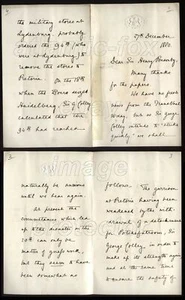 27th December
1880.
Dear Sir Henry Ponsonby,
Many thanks
for the papers.
We have no fresh
news from the Transvaal
today. but as Sir George
Colley intends to "strike
quickly" we shall
2
naturally be anxious
until we hear again.
At present the
circumstances which led
up to the disaster on the
20th can only be
matter of guesswork,
but they seem to have
been somewhat as
follows. The garrison
at Pretoria having been
weakened by the with-
drawal of a detachment
for Potchefstroom, Sir
George Colley, in order to
make up its strength again
and at the same time
to ensure the safety of
3
the military stores at
Lydenburg probably
ordered the 94th (who
were at Lydenburg) to
remove the stores to
Pretoria. On the 18th
when the Boers occupied
Heidelberg, Sir G Colley
calculated that the
94th had reached